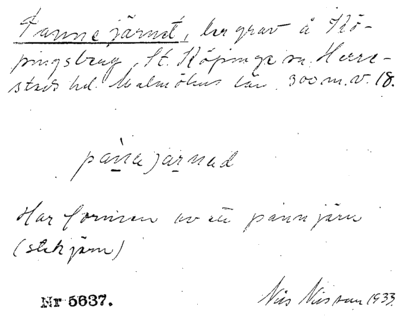 Pannejärnet, tre grav å Kö-
pingsberg, St. Köpinge sn. Herre-
stads hd. Malmöhus län, 300 m. v. 18.
pànajarnad
Har formen av ett pannjärn
(stekjärn)
Nr 5637.
Nils Nilsson 1933